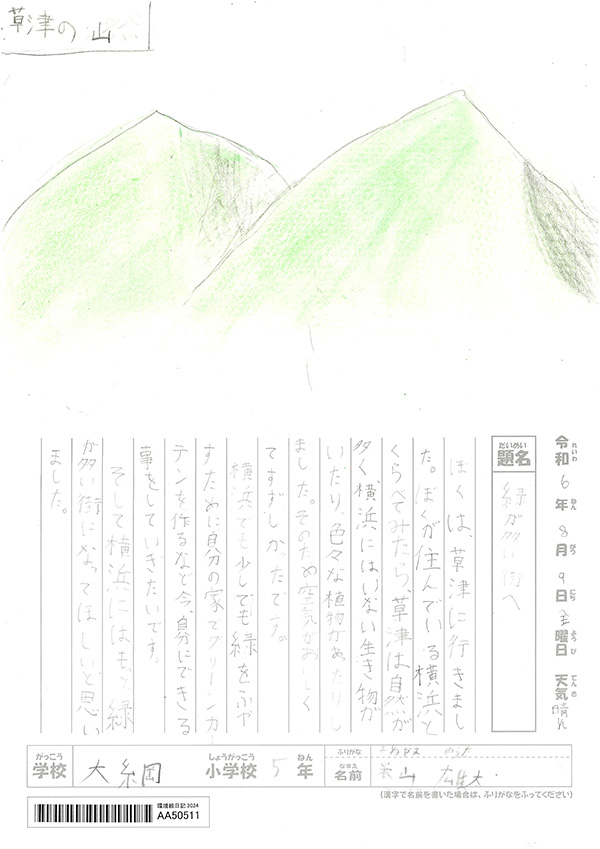 草津の山
令和6年8月9日金曜日 天気晴れ
れいわ ねん がつ にち ようび てんき
だいめい
題名
緑が多い街へ
ぼくは、草津に行きまし
た。ぼくが住んでいる横浜と
くらべてみたら、草津は自然が
多く横浜にはいない生き物が
いたり、色々な植物があったりし
ました。そのため空気がおいしく
てすずしかったです。
横浜でも少しでも緑をふや
すために自分の家でグリーンカー
テンを作るなど今、自分にできる
事をしていきたいです。
そして横浜にはもっと緑
が多い街になってほしいと思い
ました。
がっこう しょうがっこう ねん ふりがな
学校 大綱 小学校 5年
なまえ
名前 山 雄大
(漢字で名前を書いた場合は、ふりがなをふってください)
環境絵日記 2024
AA50511